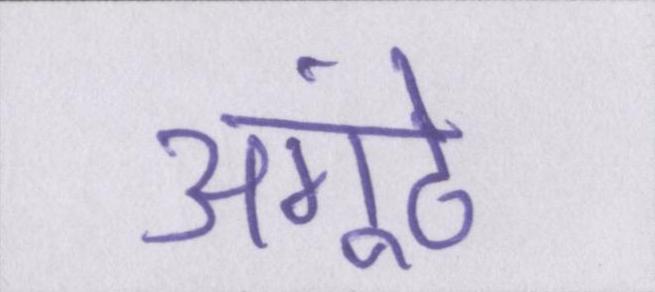 अगूंठे